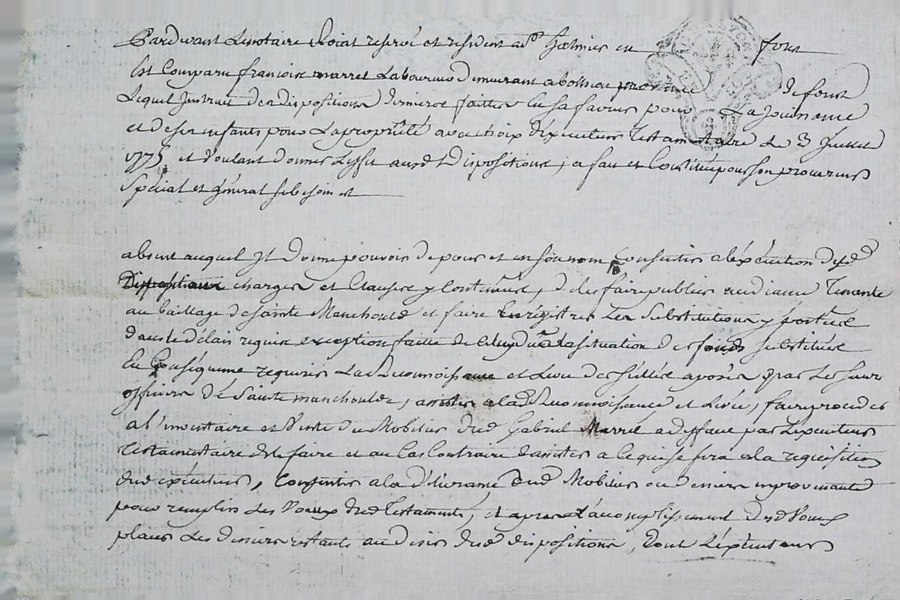 Pardevant Lenotaire Roial reservé et resident a St Galmier en forest
Est Comparu françois marret Laboureur demeurant a boisset de forest
Lequel Instruit des dispositions dernieres faittes En sa faveur pour La jouissance
et de ses enfants pour La propriété avec choix d'executeur Testamentaire Le 3 Janvier
1775 et voulant donner Effet auxd. Dispositions, a fait et Constitué pour son procureur
Spécial et général sil besoin est
absent auquel Il donne pouvoir de pour et en son nom Consentir a l'execution desd.
Dispositions charges et Clauses y Contenues, de les faire publier audiance Tenante
au baillage de Sainte Manehould et faire Enregistrer Les Substitutions y portées
dans le délais requis exception faitte de celuy de la situation des fonds substitués
En Conséquence requérir La Reconnoissance et Levée des scellés aposés par Les sieurs
officiers de Sainte manehoulde, assister a lad. Reconnoissance et Levée, faire proceder
a l'inventaire et Vente du Mobilier dud. Gabriel Marret a deffaut par L'executeur
Testamentaire de le faire et au Cas Contraire d'assister a ce qui se fera a la requisition
dud. executeur, Consentir a la délivrance dud. Mobilier ou deniers en provenants
pour remplir Les Voeux dud. Testament, et apres l'accomplissement desd. Voeux
placer Les deniers restants au desir desd. dispositions, dont L'executeur